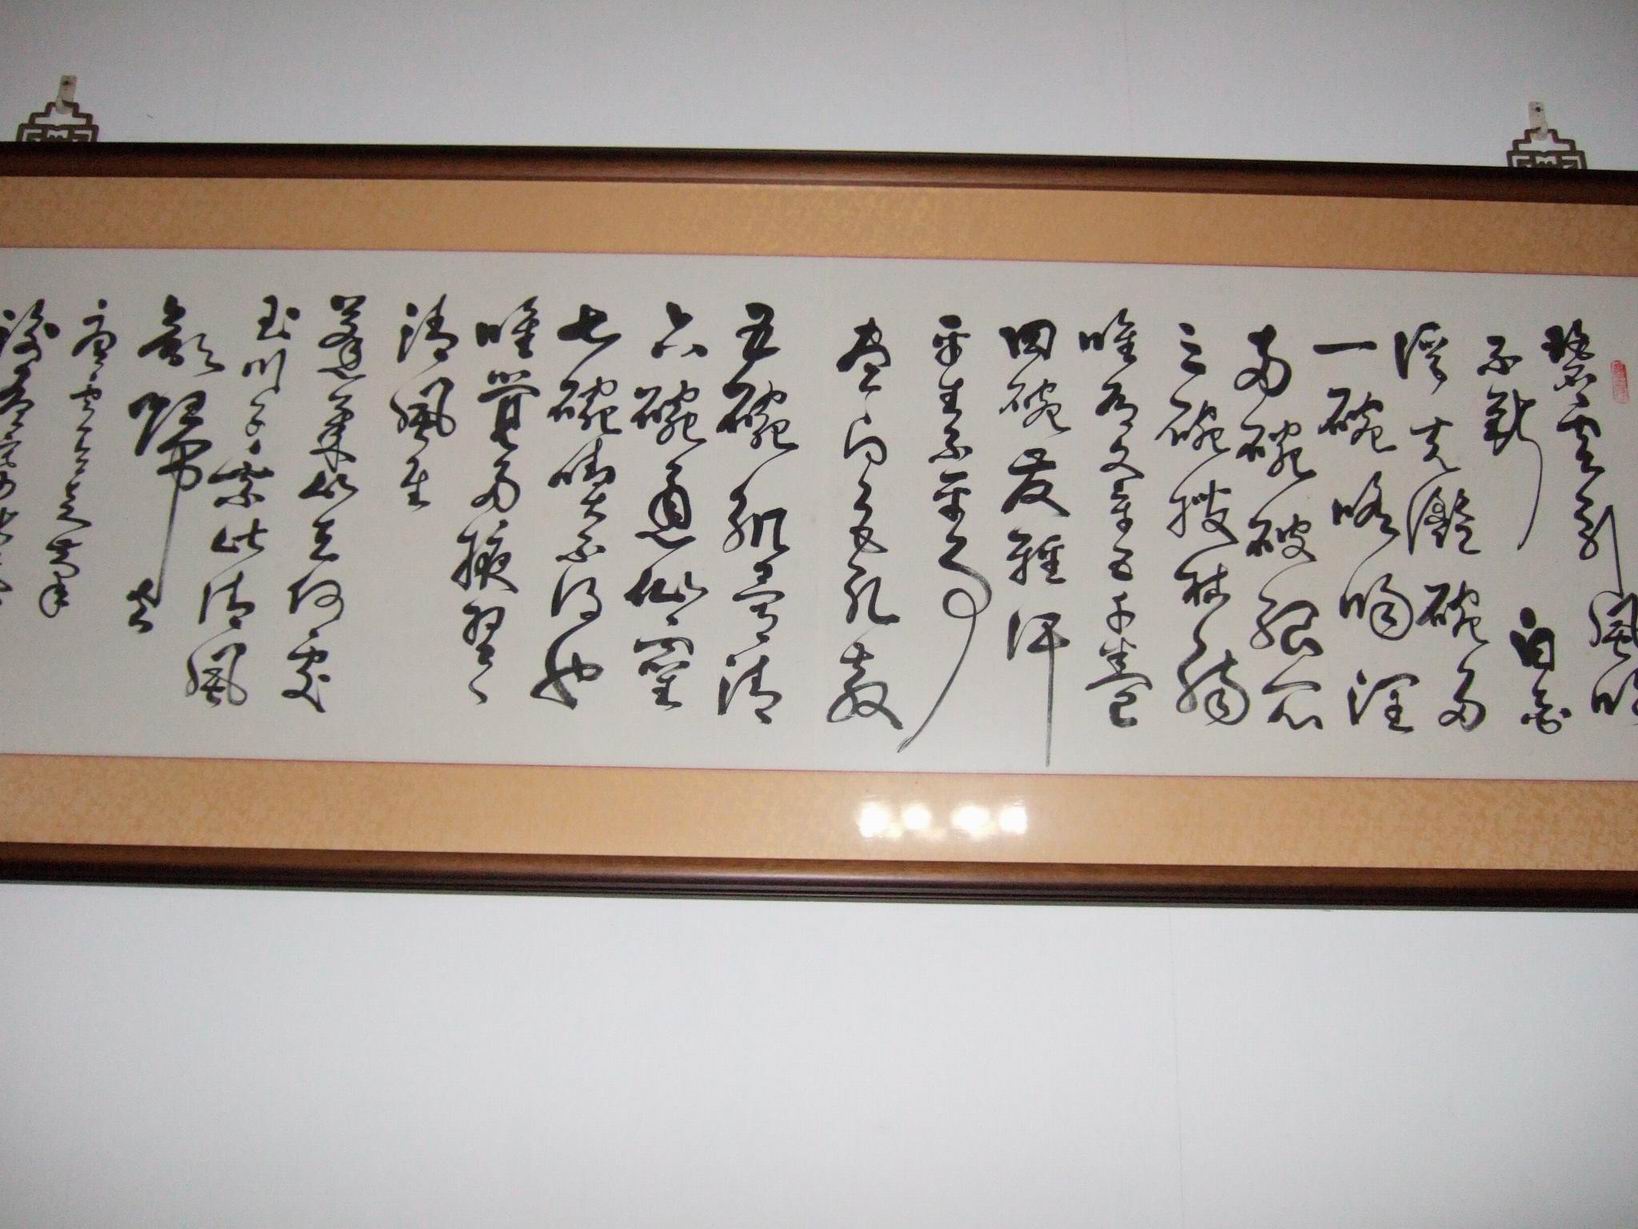 碧雲引風吹
不斷　白花
浮光凝碗面
一碗喉吻潤
兩碗破孤悶
三碗搜枯腸
唯有文字五千卷
四碗發輕汗
平生不平事
盡向毛孔散
五碗肌骨清
六碗通仙靈
七碗喫不得也
唯覺兩腋習習
清風生
蓬萊山在何處
玉川子乘此清風
欲歸去